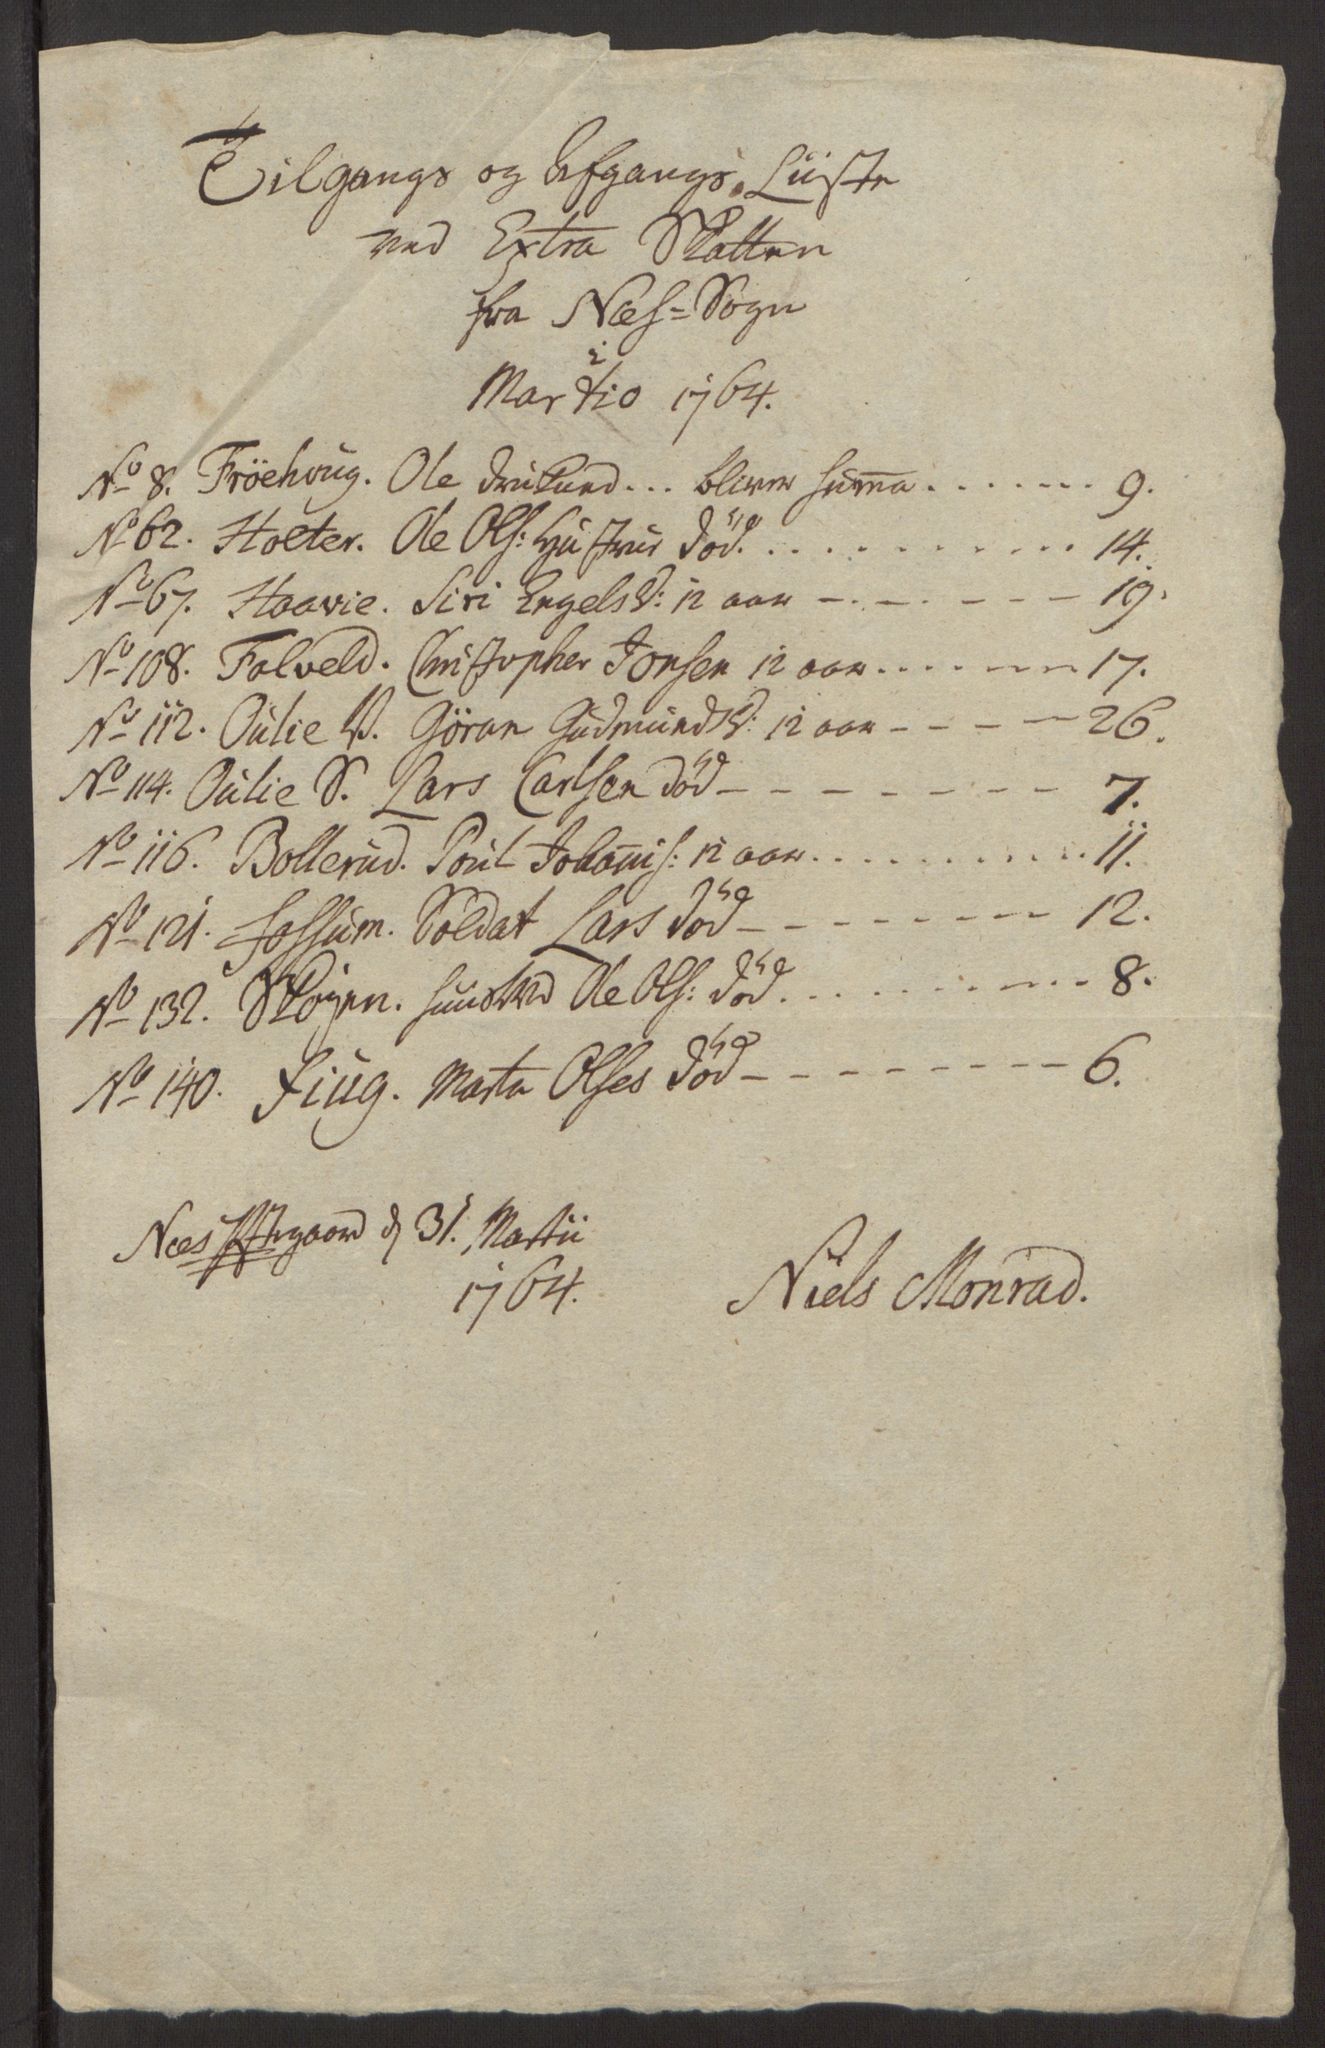 Tilgangs og Afgangs Liiste
ved Extra Skatten
fra Næs=Sogn
i
Martio 1764.
No 8. Fröehoug. Ole ... bliver suma ....... 9.
No 62. Holter. Ole Ols: Hustrue död. .......... 14.
No 67. Haavie. Siri Engelsd: 12 aar ------- 19.
No 108. Folveld. Christopher Jonsen 12 aar ....... 17.
No 112. Oulie V. Göran Gudmundsd: 12 aar ---- 26.
No 114. Oulie S. Lars Carlsen död -------- 7.
No 116. Bollerud. Poul Johanis: 12 aar .......... 11.
No 121. Fossum. Soldat Lars död ------- 12.
No 132. Skøyen. Ole Ols: död .......... 8.
No 140. Fiug. Marte Olses död --------- 6.
Næs Præstegaard d 31. Martii
1764.
Niels Monrad.